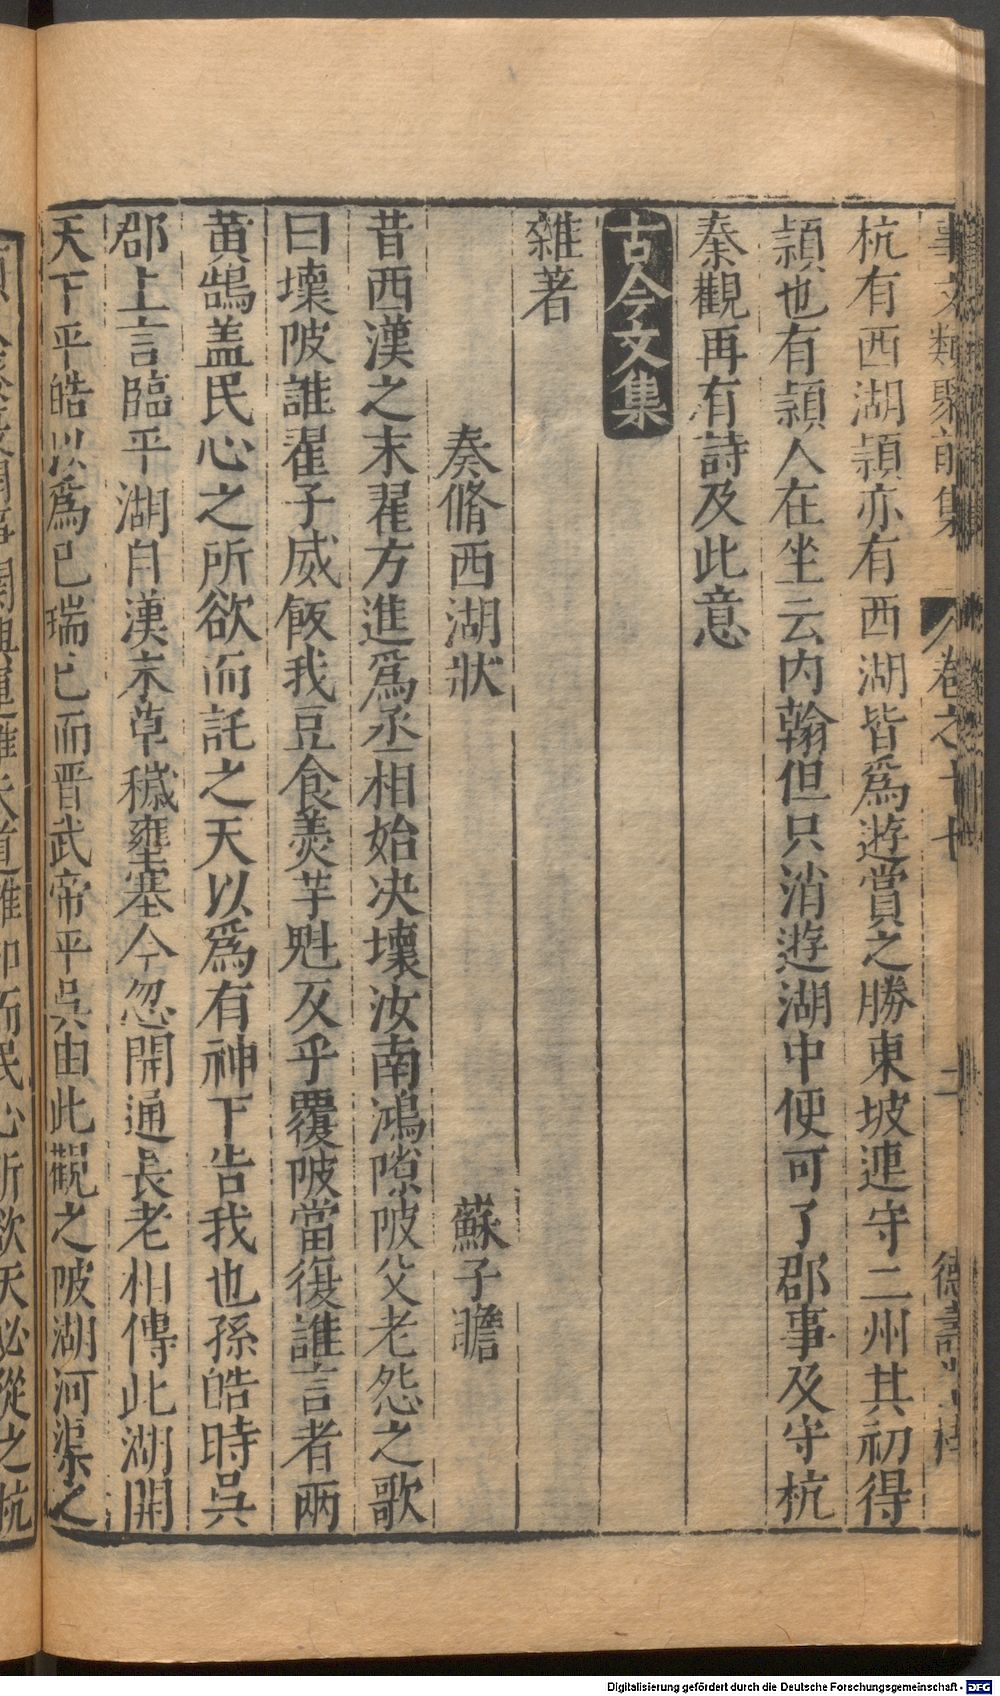 事文類聚前集 卷之十七 二 德壽堂梓
杭有西湖頴亦有西湖皆爲遊賞之勝東坡連守二州其初得
頴也有頴人在坐云内翰但只消遊湖中便可了郡事及守杭
秦觀再有詩及此意
古今文集
雜著
奏脩西湖狀 蘇子瞻
昔西漢之末翟方進爲丞相始决壞汝南鴻隙陂父老怨之歌
曰壞陂誰翟子威飯我豆食羮芋魁反乎覆陂當復誰言者兩
黄鵠盖民心之所欲而託之天以爲有神下告我也孫皓時呉
郡上言臨平湖自漢末草穢壅塞今忽開通長老相傳此湖開
天下平皓以爲己瑞已而晋武帝平呉由此觀之陂湖河渠之
道難抑而民心所欲天必從之杭
Digitalisierung gefördert durch die Deutsche Forschungsgemeinschaft - DFG